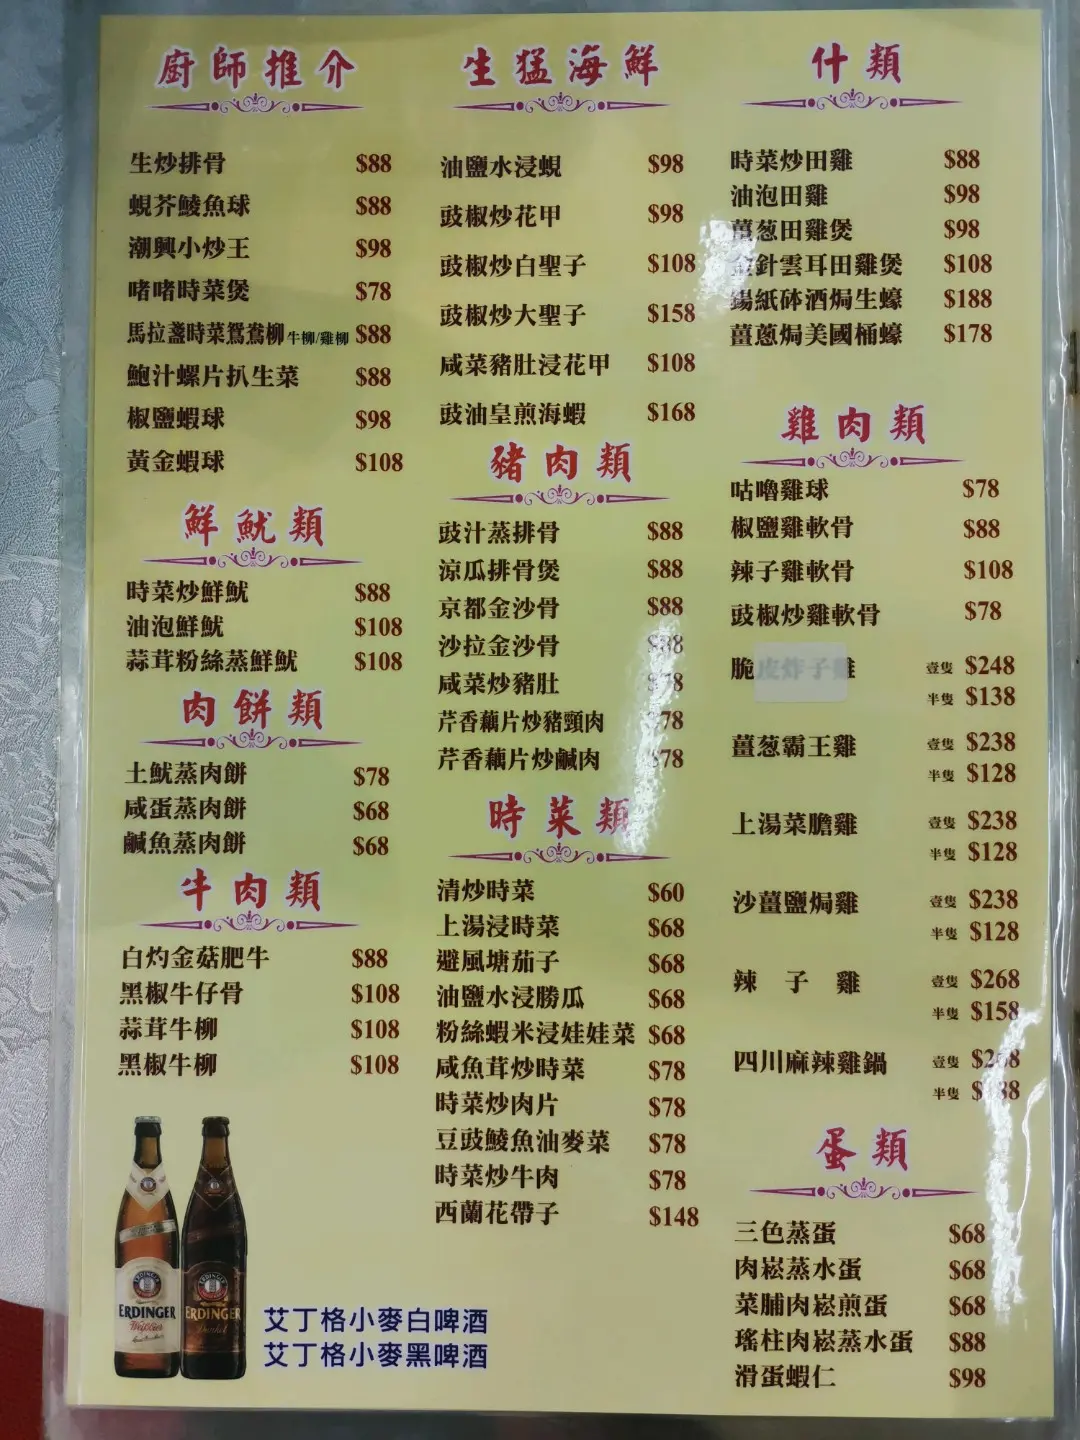 廚師推介
生炒排骨 $88
蜆芥鯪魚球 $88
潮興小炒王 $98
啫啫時菜煲 $78
馬拉盞時菜鴛鴦柳 牛柳/雞柳 $88
鮑汁螺片扒生菜 $88
椒鹽蝦球 $98
黃金蝦球 $108
鮮魷類
時菜炒鮮魷 $88
油泡鮮魷 $108
蒜茸粉絲蒸鮮魷 $108
肉餅類
土魷蒸肉餅 $78
咸蛋蒸肉餅 $68
鹹魚蒸肉餅 $68
牛肉類
白灼金菇肥牛 $88
黑椒牛仔骨 $108
蒜茸牛柳 $108
黑椒牛柳 $108
ERDINGER
Weißbier
ERDINGER
Dunkel
艾丁格小麥白啤酒
艾丁格小麥黑啤酒
生猛海鮮
油鹽水浸蜆 $98
豉椒炒花甲 $98
豉椒炒白聖子 $108
豉椒炒大聖子 $158
咸菜豬肚浸花甲 $108
豉油皇煎海蝦 $168
豬肉類
豉汁蒸排骨 $88
涼瓜排骨煲 $88
京都金沙骨 $88
沙拉金沙骨 $88
咸菜炒豬肚 $78
芹香藕片炒豬頸肉 $78
芹香藕片炒鹹肉 $78
時菜類
清炒時菜 $60
上湯浸時菜 $68
避風塘茄子 $68
油鹽水浸勝瓜 $68
粉絲蝦米浸娃娃菜 $68
咸魚茸炒時菜 $78
時菜炒肉片 $78
豆豉鯪魚油麥菜 $78
時菜炒牛肉 $78
西蘭花帶子 $148
什類
時菜炒田雞 $88
油泡田雞 $98
薑葱田雞煲 $98
金針雲耳田雞煲 $108
錫紙砵酒焗生蠔 $188
薑蔥焗美國桶蠔 $178
雞肉類
咕嚕雞球 $78
椒鹽雞軟骨 $88
辣子雞軟骨 $108
豉椒炒雞軟骨 $78
脆皮炸子雞 壹隻 $248
半隻 $138
薑葱霸王雞 壹隻 $238
半隻 $128
上湯菜膽雞 壹隻 $238
半隻 $128
沙薑鹽焗雞 壹隻 $238
半隻 $128
辣子雞 壹隻 $268
半隻 $158
四川麻辣雞鍋 壹隻 $268
半隻
蛋類
三色蒸蛋 $68
肉崧蒸水蛋 $68
菜脯肉崧煎蛋 $68
瑤柱肉崧蒸水蛋 $88
滑蛋蝦仁 $98